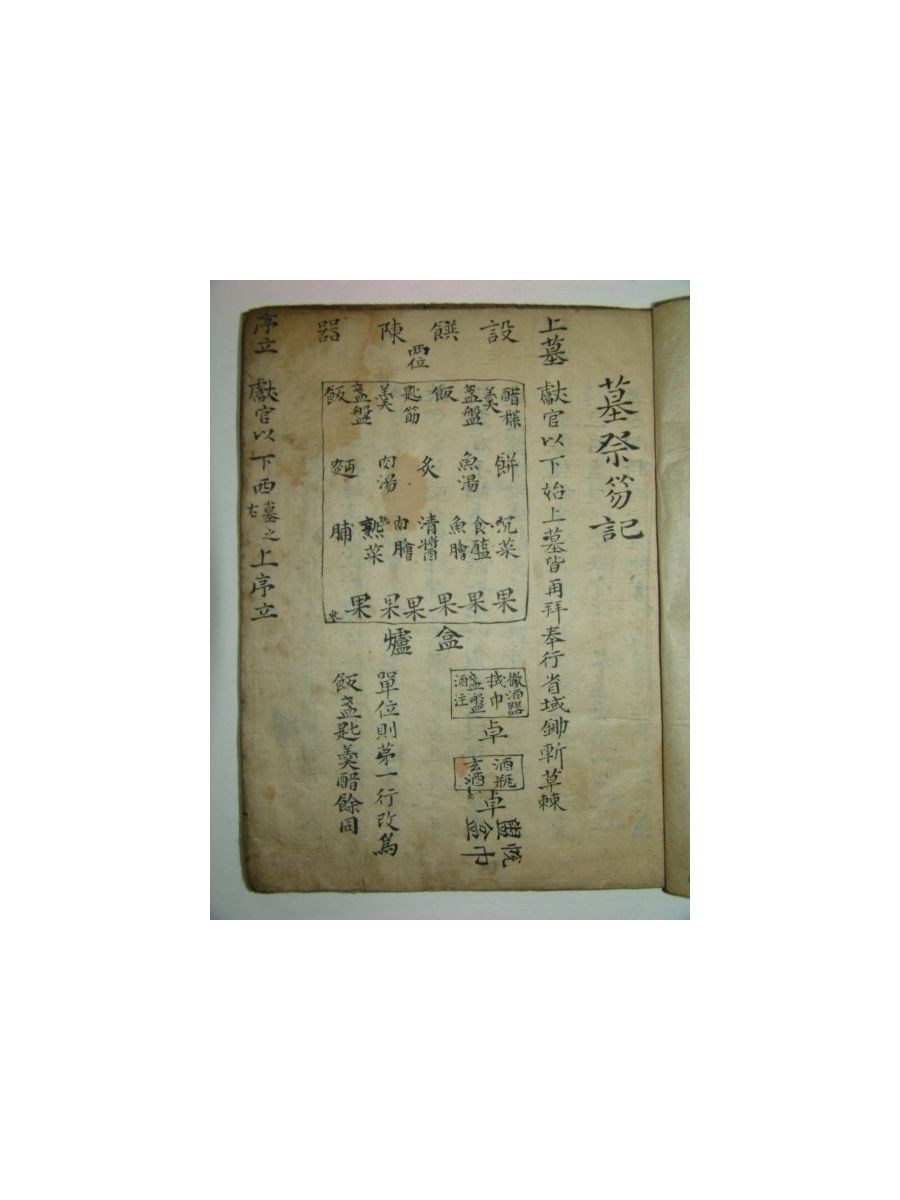 墓祭笏記
上墓 獻官以下始上墓皆再拜奉行省域鋤斬草棘
設饌陳器
兩位
醋楪 羹 盞盤 飯 匙筯 羹 盞盤 飯
餠 魚湯 炙 肉湯 麵
沉菜 食醢 魚膾 清醬 肉膾 熟菜 脯
果 果 果 果 果 果
盒 爐
徹酒器 拭巾 盞盤 酒注
卓
酒瓶 玄酒
卓
盥盆 帨巾
單位則第一行改爲
飯盞匙羹醋餘同
序立 獻官以下西墓之右上序立